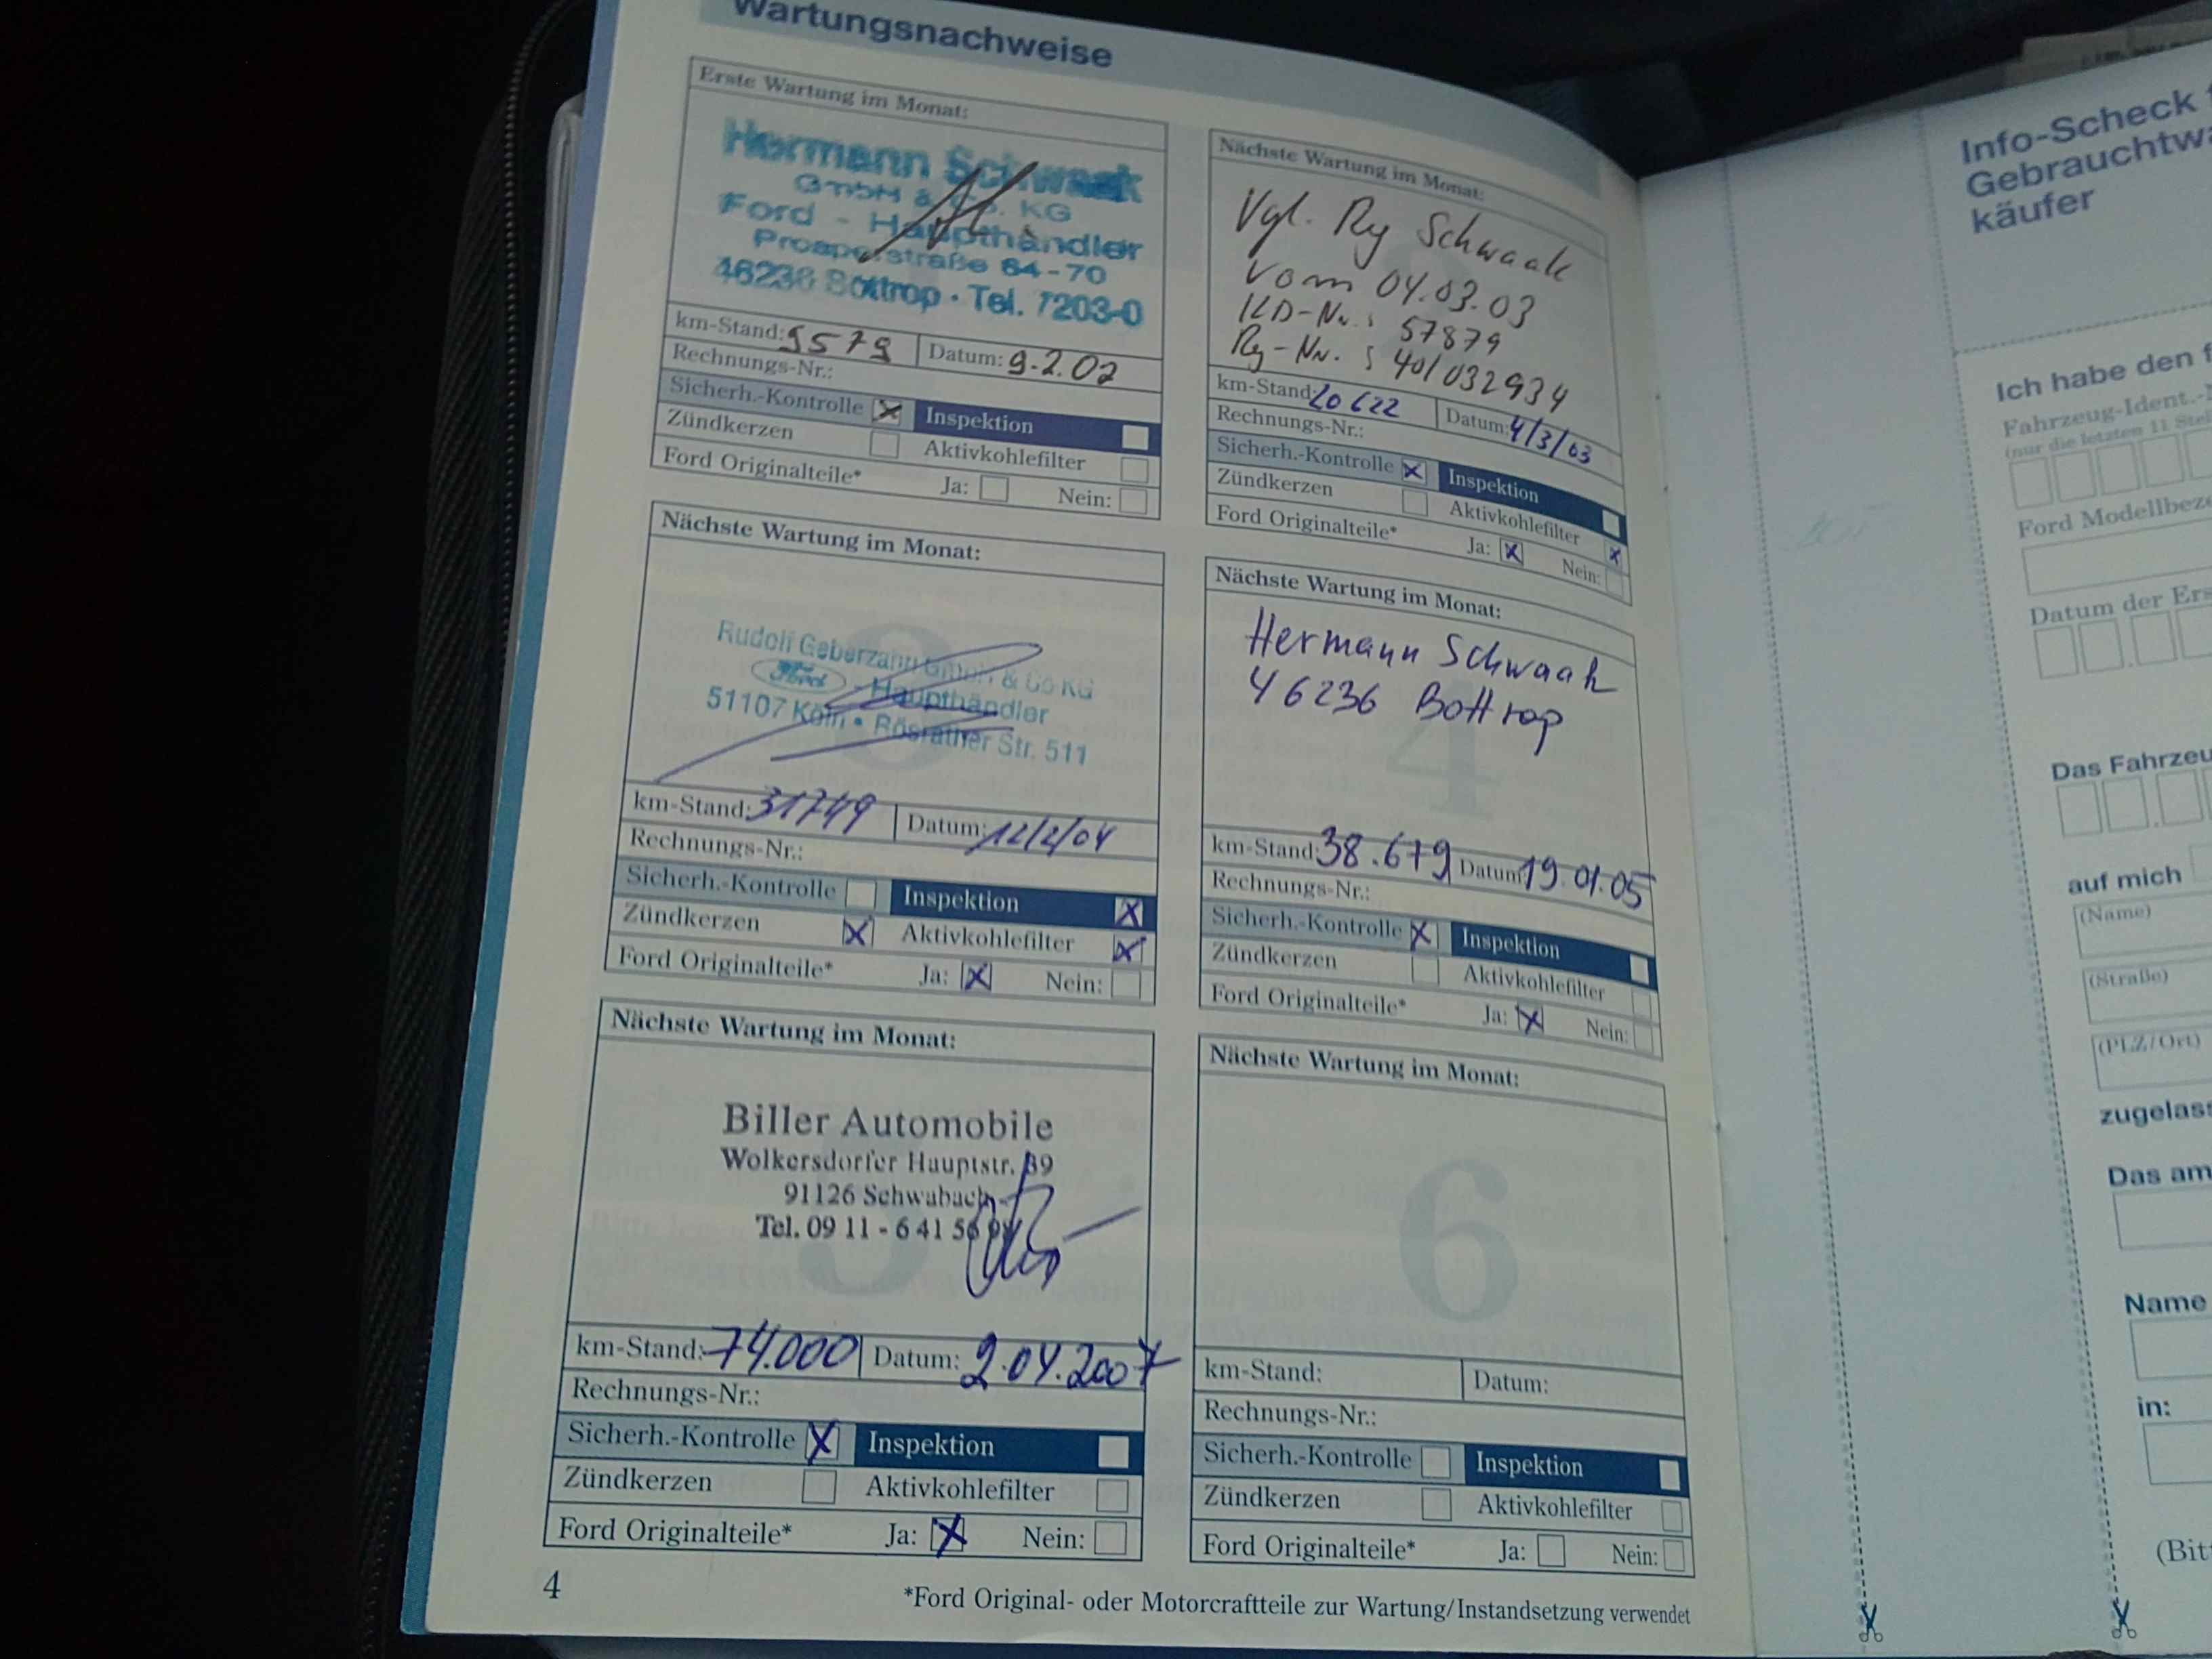 Wartungsnachweise
Erste Wartung im Monat:
Hermann Schwaak
GmbH & Co. KG
Ford - Haupthändler
Prosperstraße 64-70
46236 Bottrop · Tel. 7203-0
km-Stand: 9579 Datum: 9.2.02
Rechnungs-Nr.:
Sicherh.-Kontrolle Inspektion
Zündkerzen Aktivkohlefilter
Ford Originalteile* Ja: Nein:
Nächste Wartung im Monat:
Vgl. Rg Schwaak
vom 04.03.03
KD-Nr.: 57879
Rg-Nr.: 401032934
km-Stand: 20622 Datum: 4/3/03
Rechnungs-Nr.:
Sicherh.-Kontrolle Inspektion
Zündkerzen Aktivkohlefilter
Ford Originalteile* Ja: Nein:
Nächste Wartung im Monat:
Rudolf Geberzahn GmbH & Co KG
Ford - Haupthändler
51107 Köln • Rösrather Str. 511
km-Stand: 31749 Datum: 12/2/04
Rechnungs-Nr.:
Sicherh.-Kontrolle Inspektion
Zündkerzen Aktivkohlefilter
Ford Originalteile* Ja: Nein:
Nächste Wartung im Monat:
4
Hermann Schwaak
46236 Bottrop
km-Stand: 38.679 Datum: 19.01.05
Rechnungs-Nr.:
Sicherh.-Kontrolle Inspektion
Zündkerzen Aktivkohlefilter
Ford Originalteile* Ja: Nein:
Nächste Wartung im Monat:
5
Biller Automobile
Wolkersdorfer Hauptstr. 39
91126 Schwabach
Tel. 09 11 - 6 41 56
km-Stand: 74.000 Datum: 2.04.2007
Rechnungs-Nr.:
Sicherh.-Kontrolle Inspektion
Zündkerzen Aktivkohlefilter
Ford Originalteile* Ja: Nein:
Nächste Wartung im Monat:
6
km-Stand: Datum:
Rechnungs-Nr.:
Sicherh.-Kontrolle Inspektion
Zündkerzen Aktivkohlefilter
Ford Originalteile* Ja: Nein:
4
*Ford Original- oder Motorcraftteile zur Wartung/Instandsetzung verwendet
Info-Scheck
Gebrauchtwa
käufer
Ich habe den f
Fahrzeug-Ident.-
(nur die letzten 11 Stel
Ford Modellbeze
Datum der Ers
Das Fahrzeu
auf mich
(Name)
(Straße)
(PLZ/Ort)
zugelass
Das am
Name
in:
(Bit